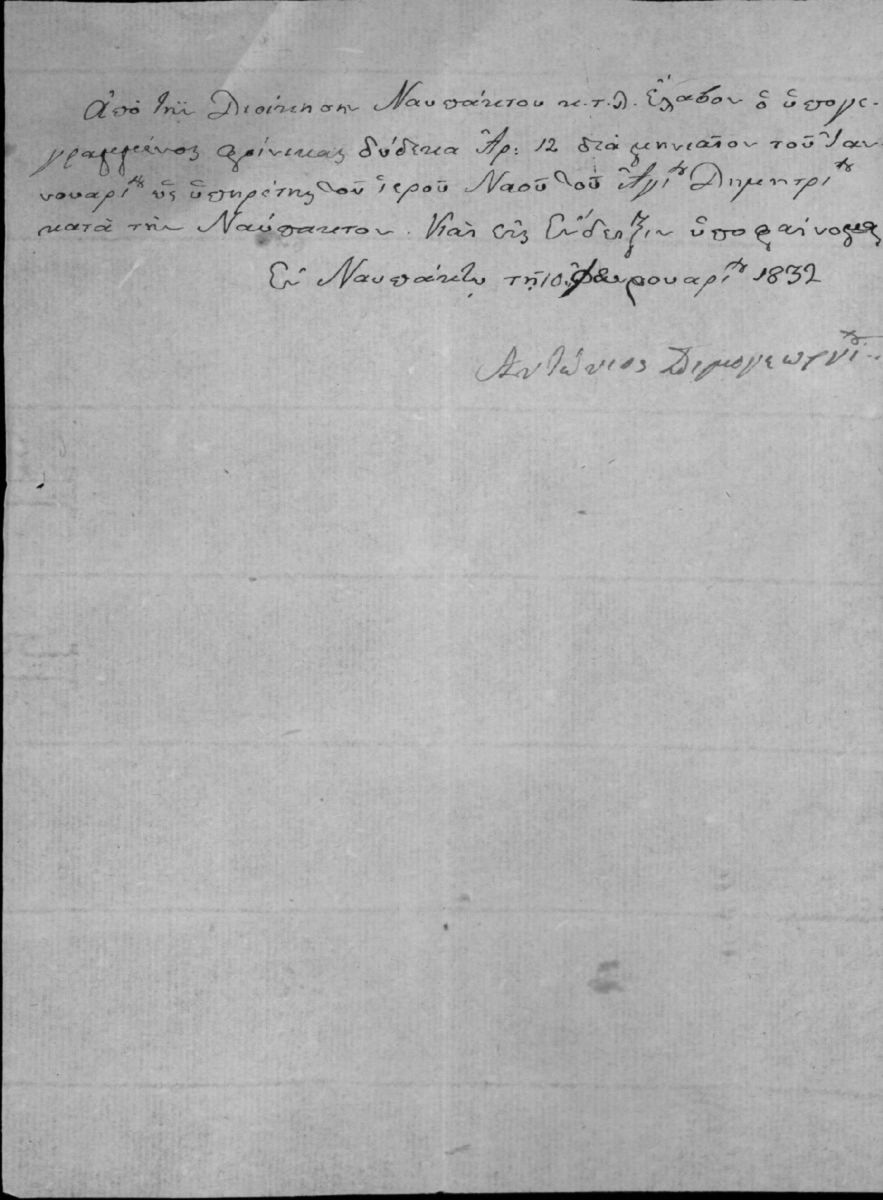 Ἀπὸ τὴν Διοίκησην Ναυπάκτου κ.τ.λ. ἔλαβον ὁ ὑπογε-
γραμμένος φοίνικας δώδεκα Ἀρ: 12 διὰ μηνιαῖον τοῦ Ἰαν-
νουαρίου ὡς ὑπηρέτης τοῦ ἱεροῦ Ναοῦ τοῦ Ἁγίου Δημητρίου
κατὰ τὴν Ναύπακτον. Καὶ εἰς ἔνδειξιν ὑποφαίνομαι
Ἐν Ναυπάκτῳ τῇ 10 Φευρουαρίου 1832
Ἀντώνιος Δημογεωργίου